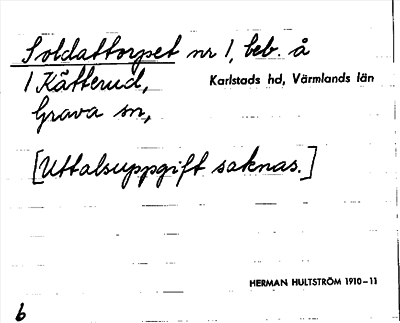 Soldattorpet nr 1, beb. å
1 Kätterud, Karlstads hd, Värmlands län
Grava sn,
[Uttalsuppgift saknas.]
HERMAN HULTSTRÖM 1910–11
b